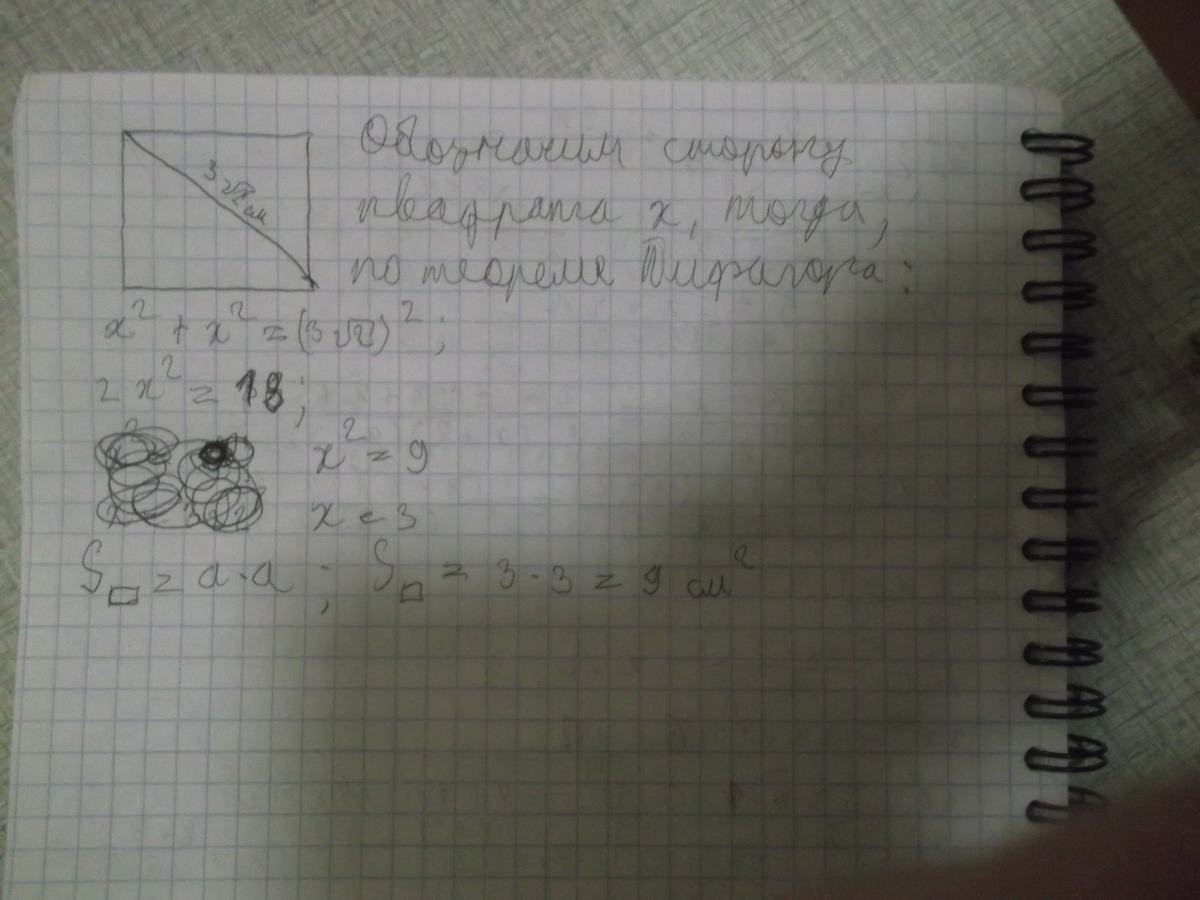 3√2 см
Обозначим сторону
квадрата x, тогда,
по теореме Пифагора:
x² + x² = (3√2)²;
2x² = 18;
x² = 9
x = 3
S□ = a·a ; S□ = 3·3 = 9 см²